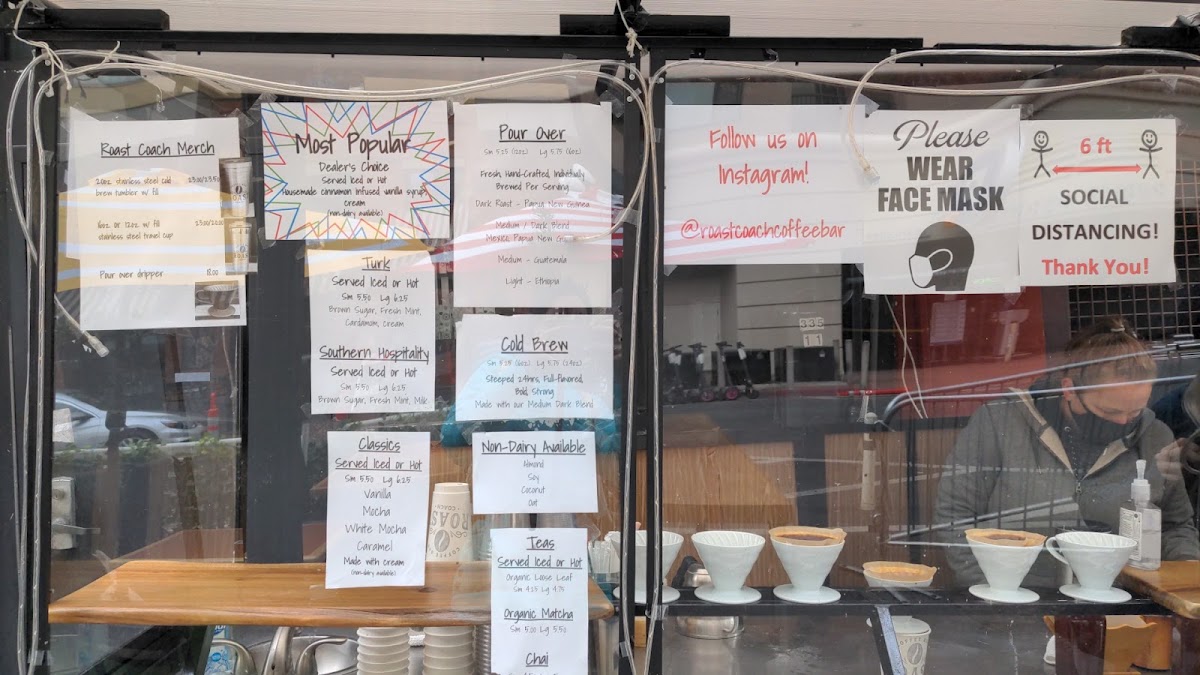 Roast Coach Merch
20oz. stainless steel cold
brew tumbler w/ fill
16oz. or 12oz. w/ fill
stainless steel travel cup
Pour over dripper
Most Popular
Dealer's Choice
Served Iced or Hot
Housemade cinnamon infused vanilla syrup,
cream
(non-dairy available)
Turk
Served Iced or Hot
Sm 5.50 Lg 6.25
Brown Sugar, Fresh Mint,
Cardamom, Cream
Southern Hospitality
Served Iced or Hot
Sm 5.50 Lg 6.25
Brown Sugar, Fresh Mint, Milk
Classics
Served Iced or Hot
Sm 5.50 Lg 6.25
Vanilla
Mocha
White Mocha
Caramel
Made with cream
(non-dairy available)
Pour Over
Sm 5.25 Lg 5.75
Fresh, Hand-Crafted, Individually
Brewed Per Serving
Dark Roast - Papua New Guinea
Medium / Dark Blend
Mexico, Papua New Guinea
Medium - Guatemala
Light - Ethiopia
Cold Brew
Sm 5.25 Lg 5.75
Steeped 24hrs, Full-flavored,
Bold, Strong
Made with our Medium Dark Blend
Non-Dairy Available
Almond
Soy
Coconut
Oat
Teas
Served Iced or Hot
Organic Loose Leaf
Sm 4.25 Lg 4.75
Organic Matcha
Sm 5.00 Lg 5.50
Chai
Follow us on
Instagram!
@roastcoachcoffeebar
Please
WEAR
FACE MASK
6 ft
SOCIAL
DISTANCING!
Thank You!
ROAST
335
11